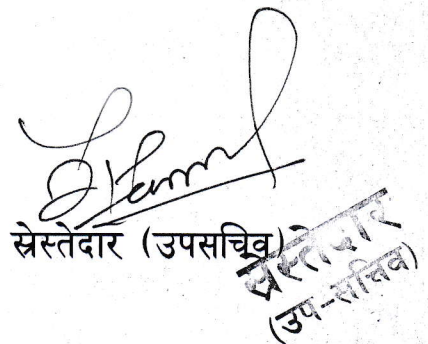 स्रेस्तेदार (उपसचिव)
स्रेस्तेदार
(उप-सचिव)